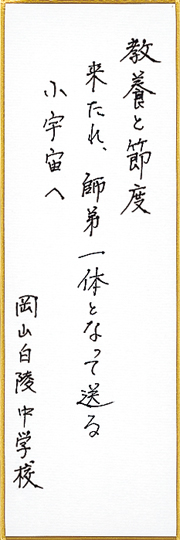 教養と節度
来たれ、師弟一体となって送る
小宇宙へ
岡山白陵中学校